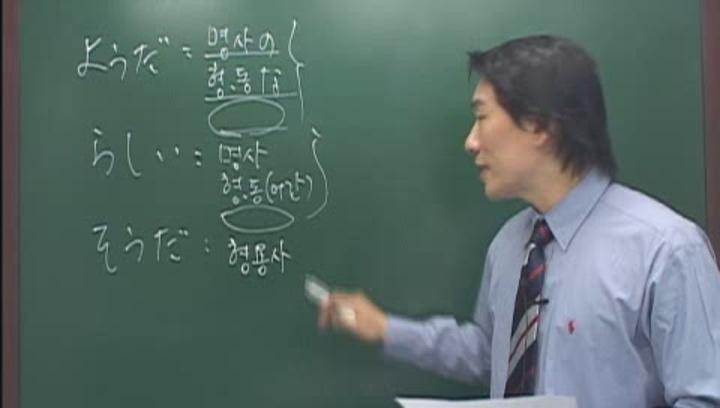 ようだ : 명사の
형.동な
らしい : 명사
형.동(어간)
そうだ : 형용사